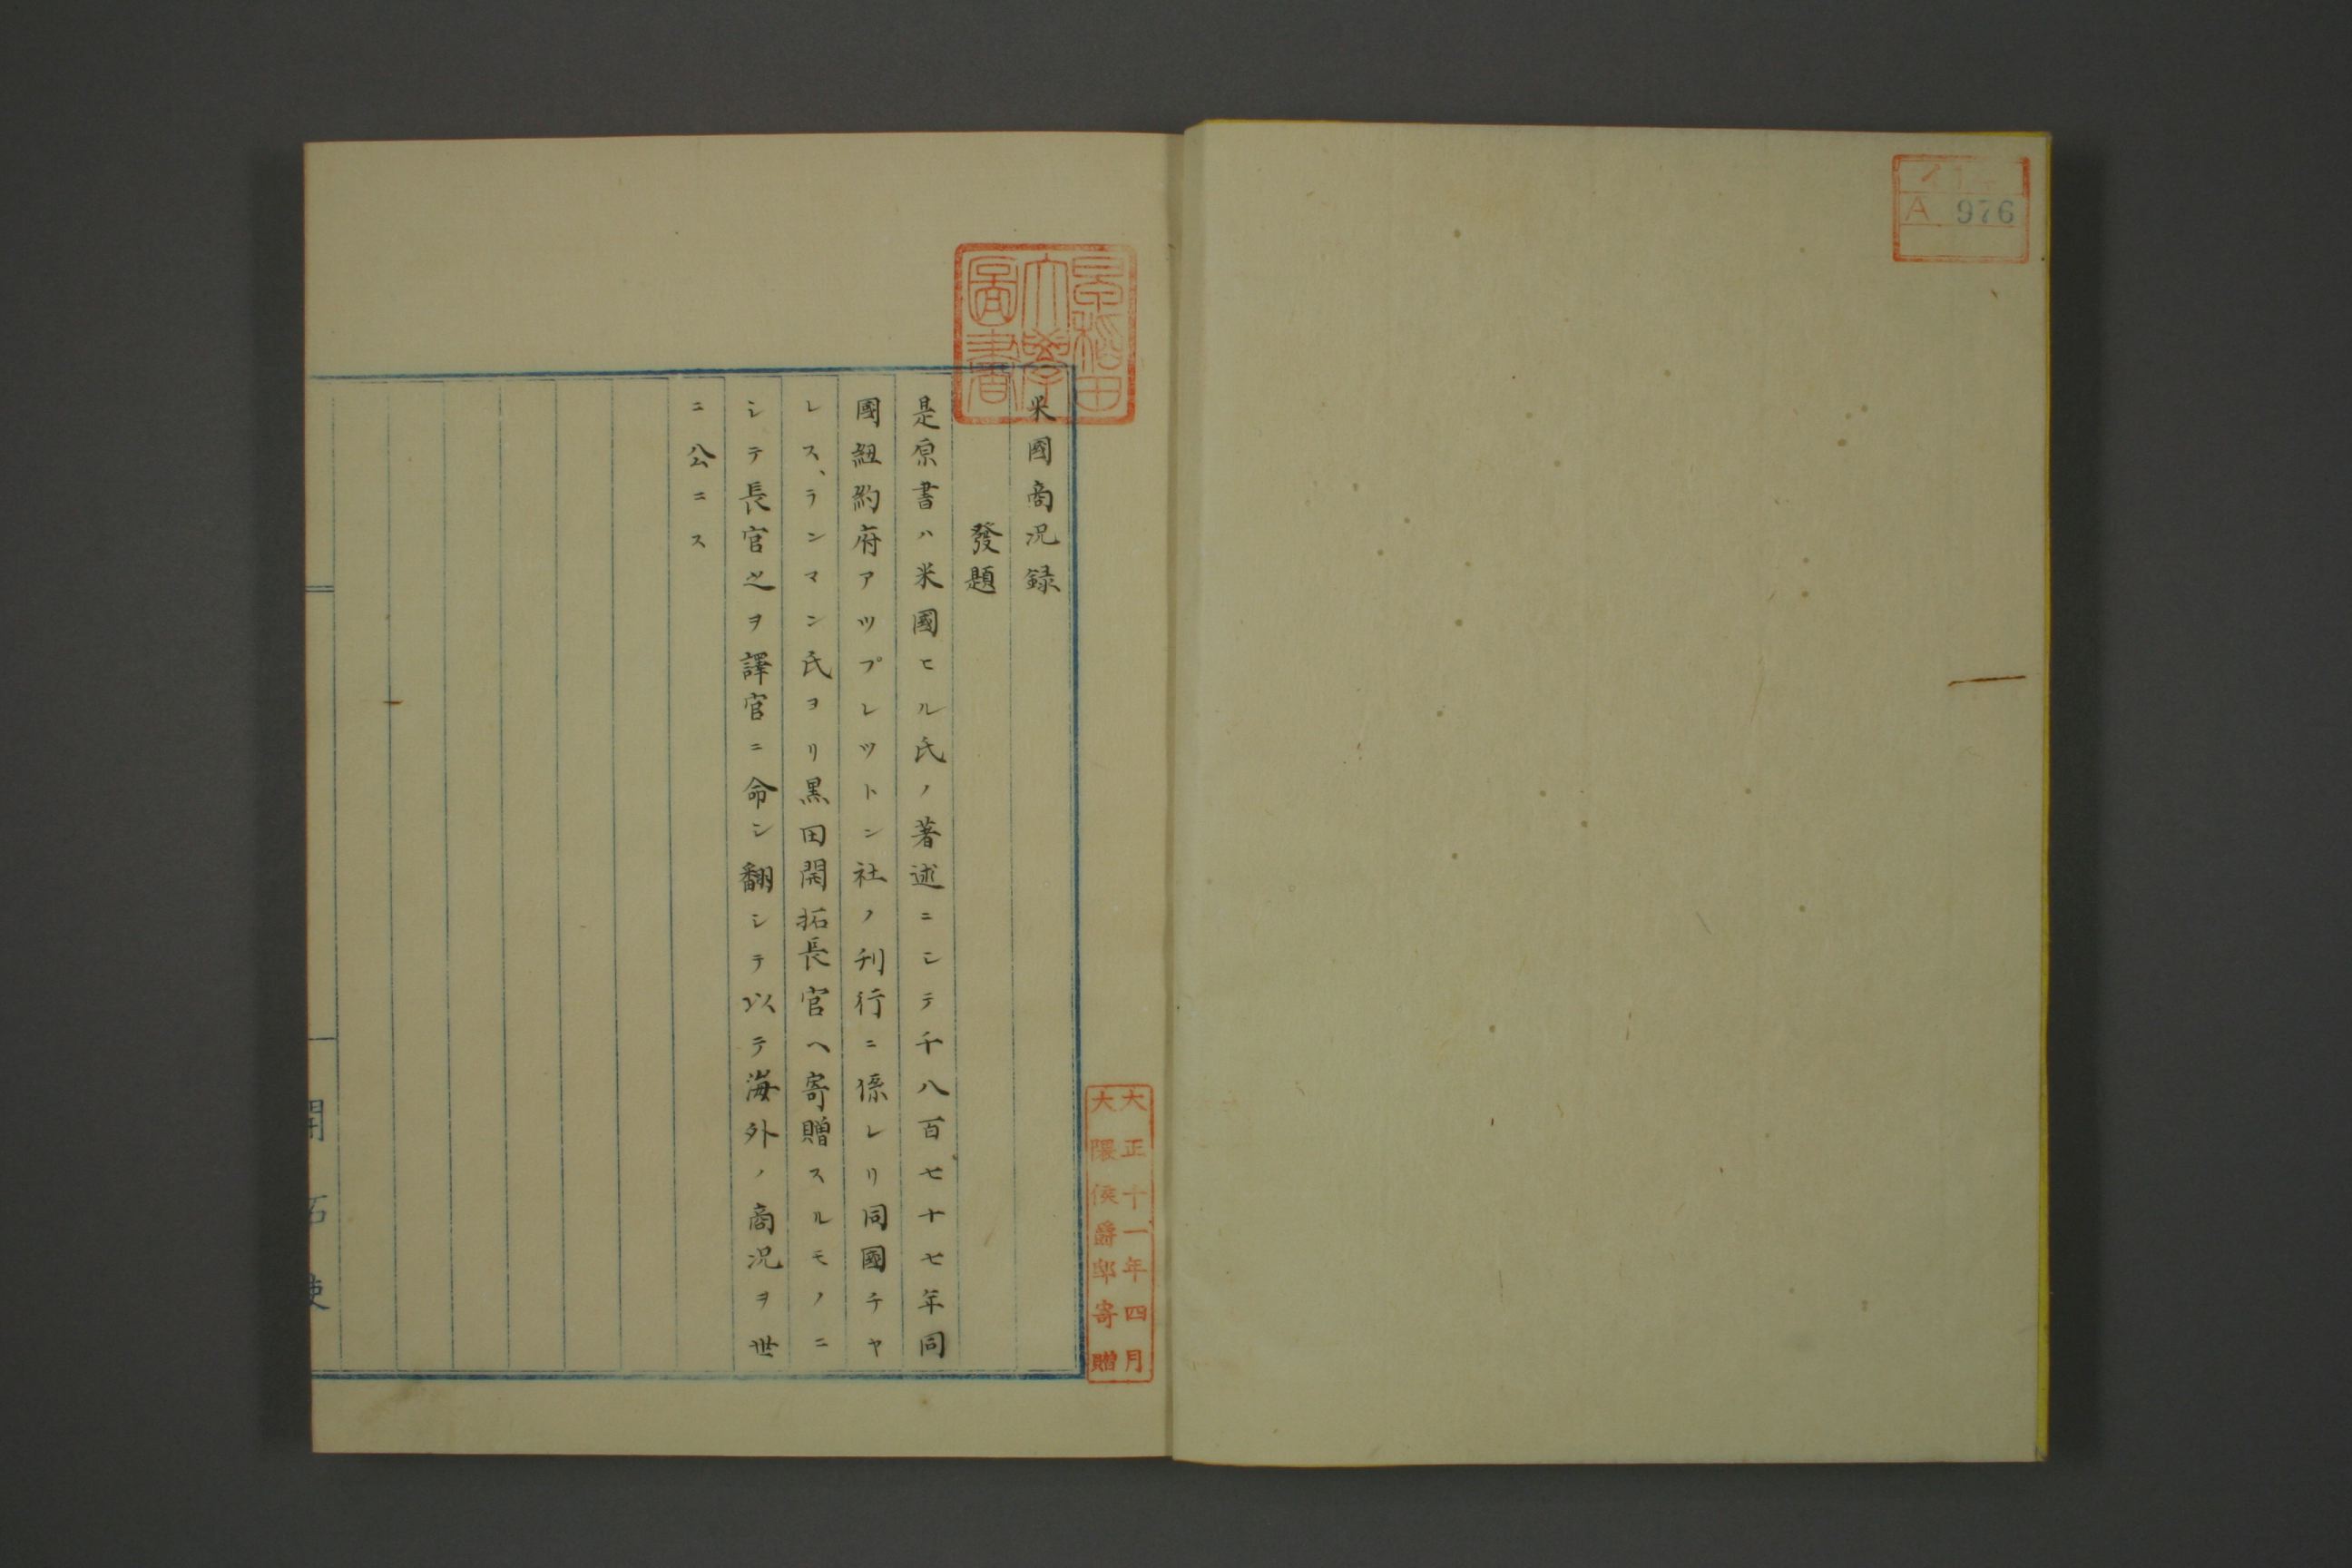 A 976
早稲田
大學
圖書
大正十一年四月
大隈侯爵邸寄贈
米國商況録
發題
是原書ハ米國ヒル氏ノ著述ニシテ千八百七十七年同
國紐約府アツプレツトン社ノ刊行ニ係レリ同國チヤ
レス、ランマン氏ヨリ黒田開拓長官ヘ寄贈スルモノニ
シテ長官之ヲ譯官ニ命シ翻シテ以テ海外ノ商況ヲ世
ニ公ニス
開拓使